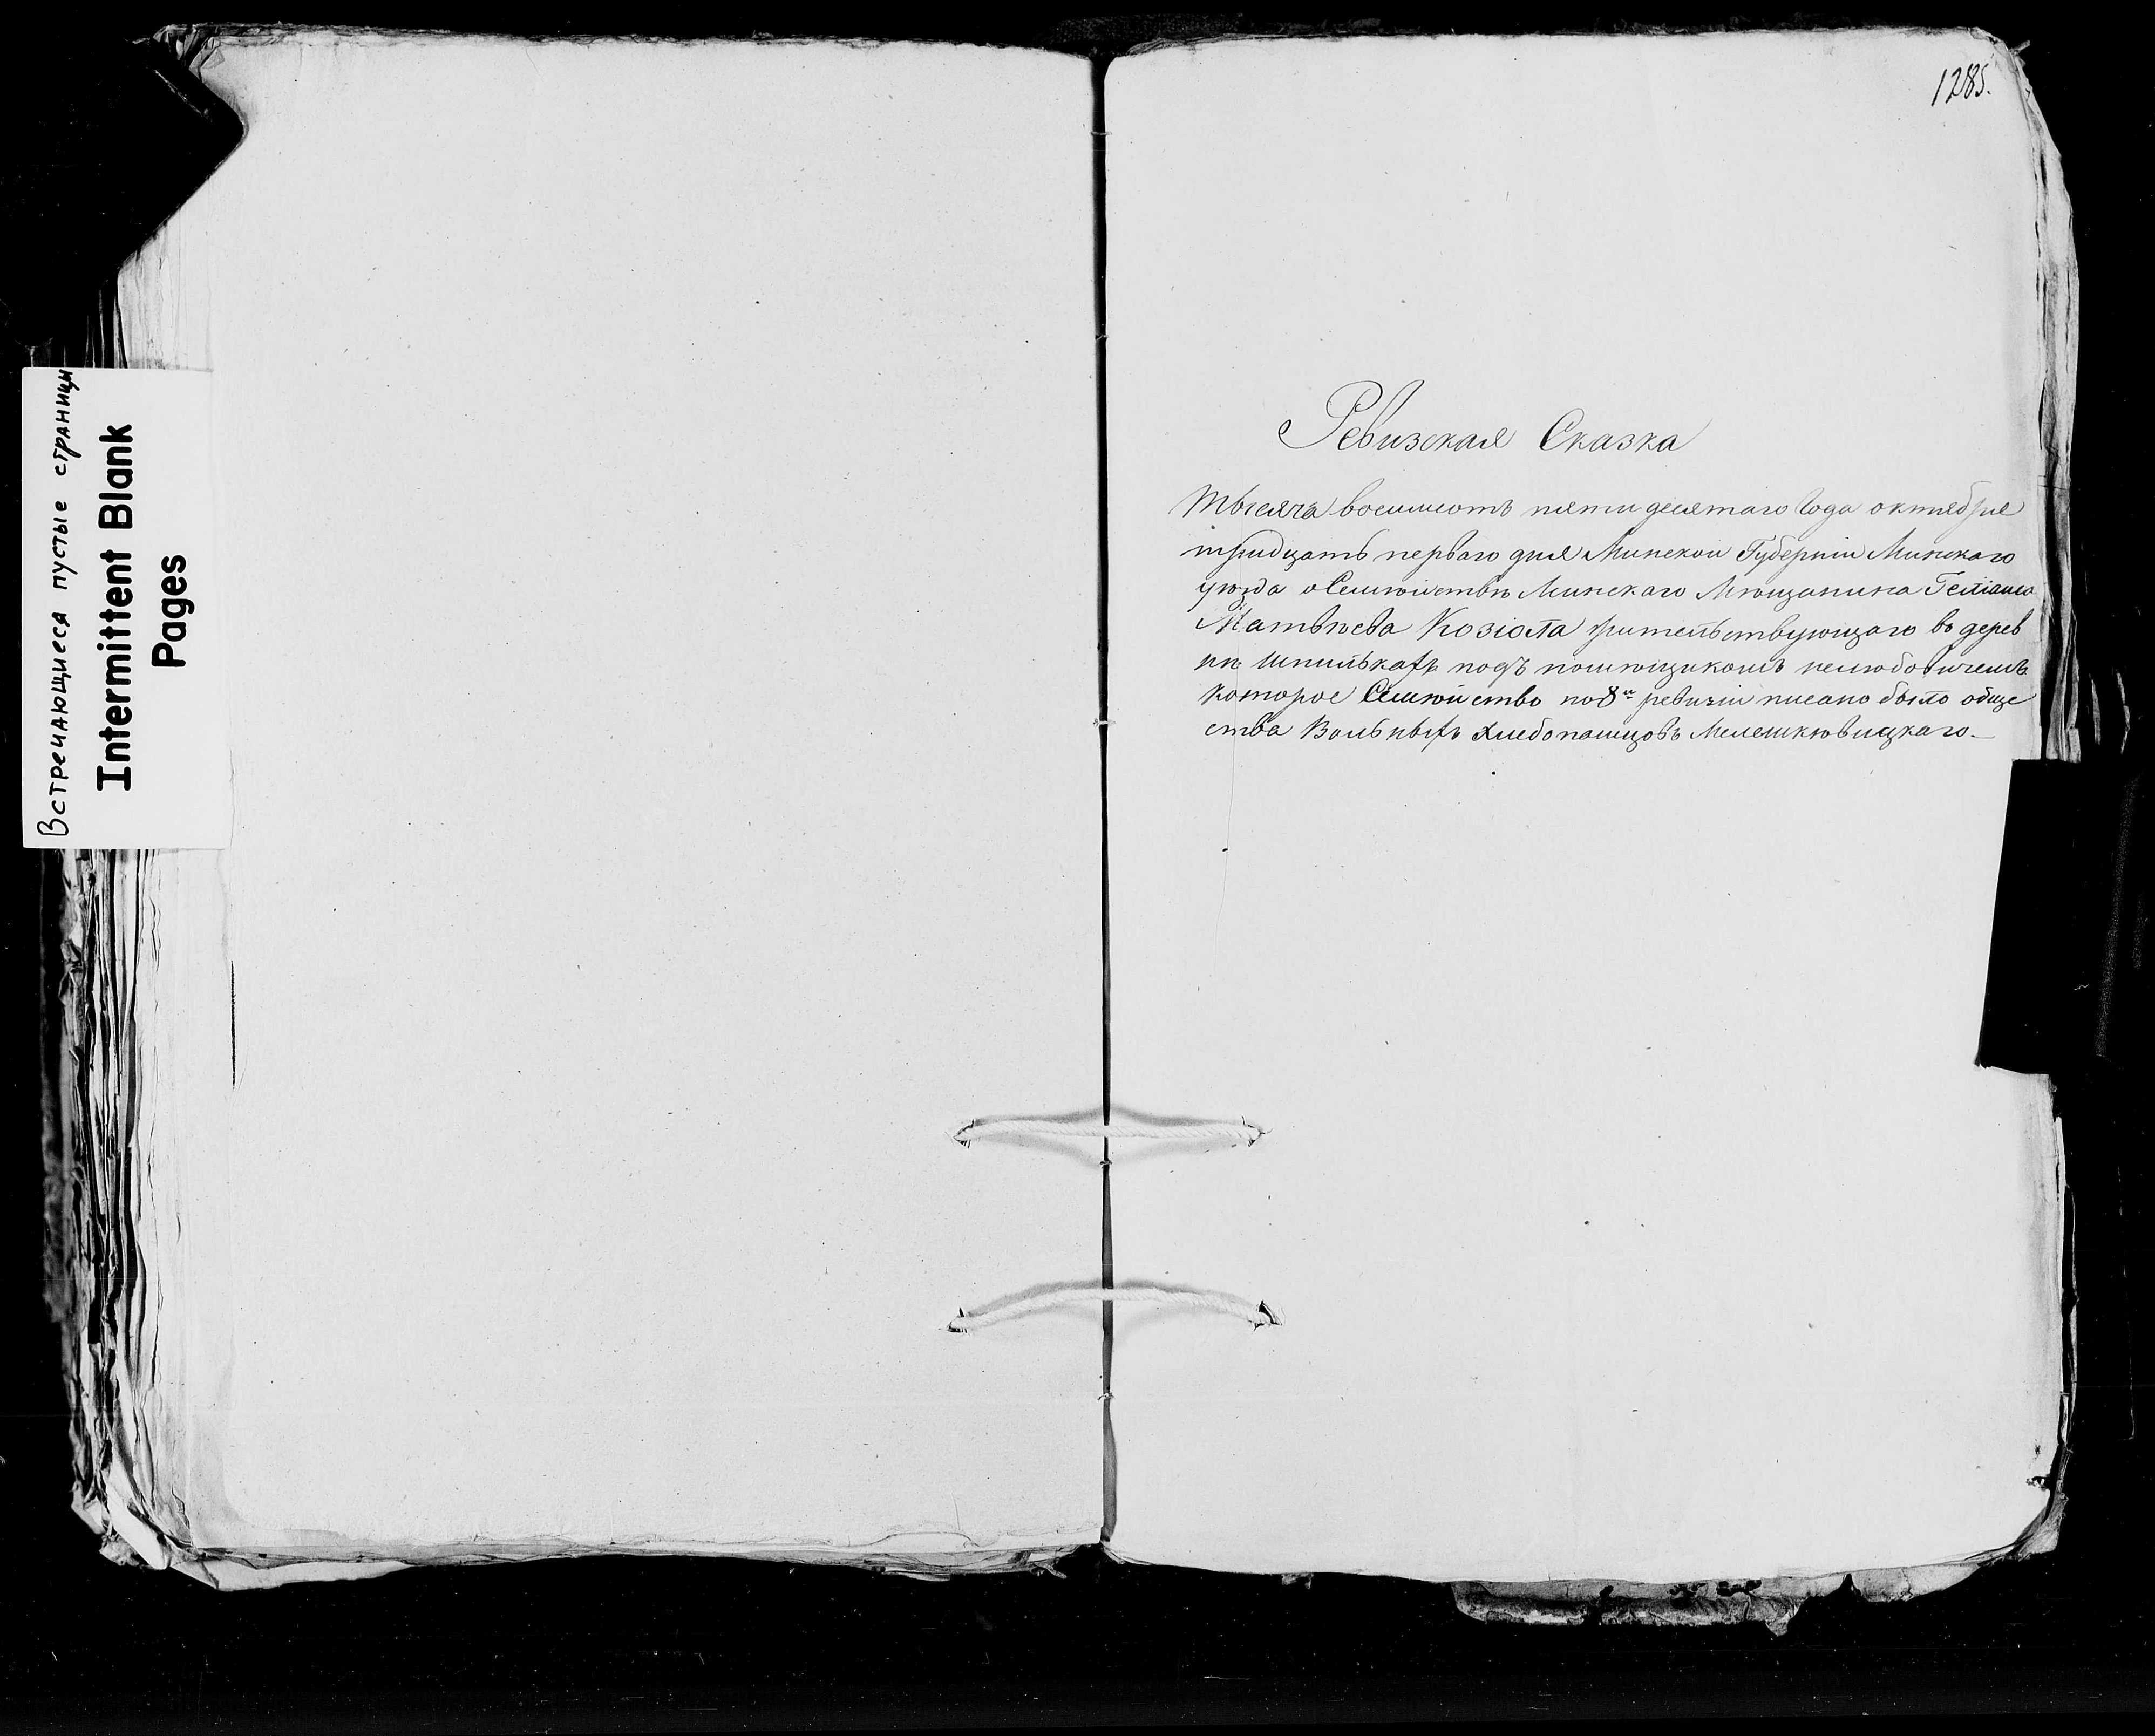 Встречающиеся пустые страницы
Intermittent Blank
Pages
1285.
Ревизская Сказка
тысяча восимсотъ пятидесятаго Года октября
тридцать перваго дня Минской Губерніи Минскаго
уѣзда о Семѣйствѣ Минскаго Мѣщанина
Матвѣева Козіола жительствующаго въ дерев
нѣ Шпилькахъ подъ помѣщикомъ
которое Семѣйство по 8й ревизіи писано было обще
ства Вольныхъ хлебопашцовъ